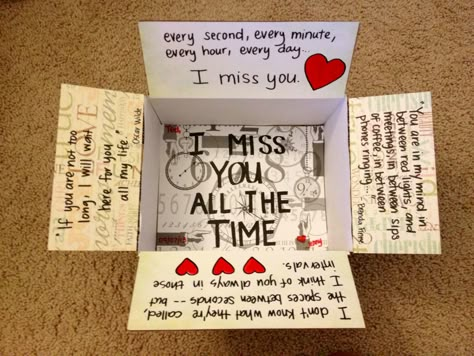 every second, every minute,
every hour, every day...
I miss you.
"If you are not too
long, I will wait
here for you
all my life."
Oscar Wilde
I MISS
YOU
ALL THE
TIME
"You are in my mind in
between red lights, and
meetings, in between sips
of coffee, in between
phones ringing..."
I don't know what they're called,
the spaces between seconds -- but
I think of you always in those
intervals.